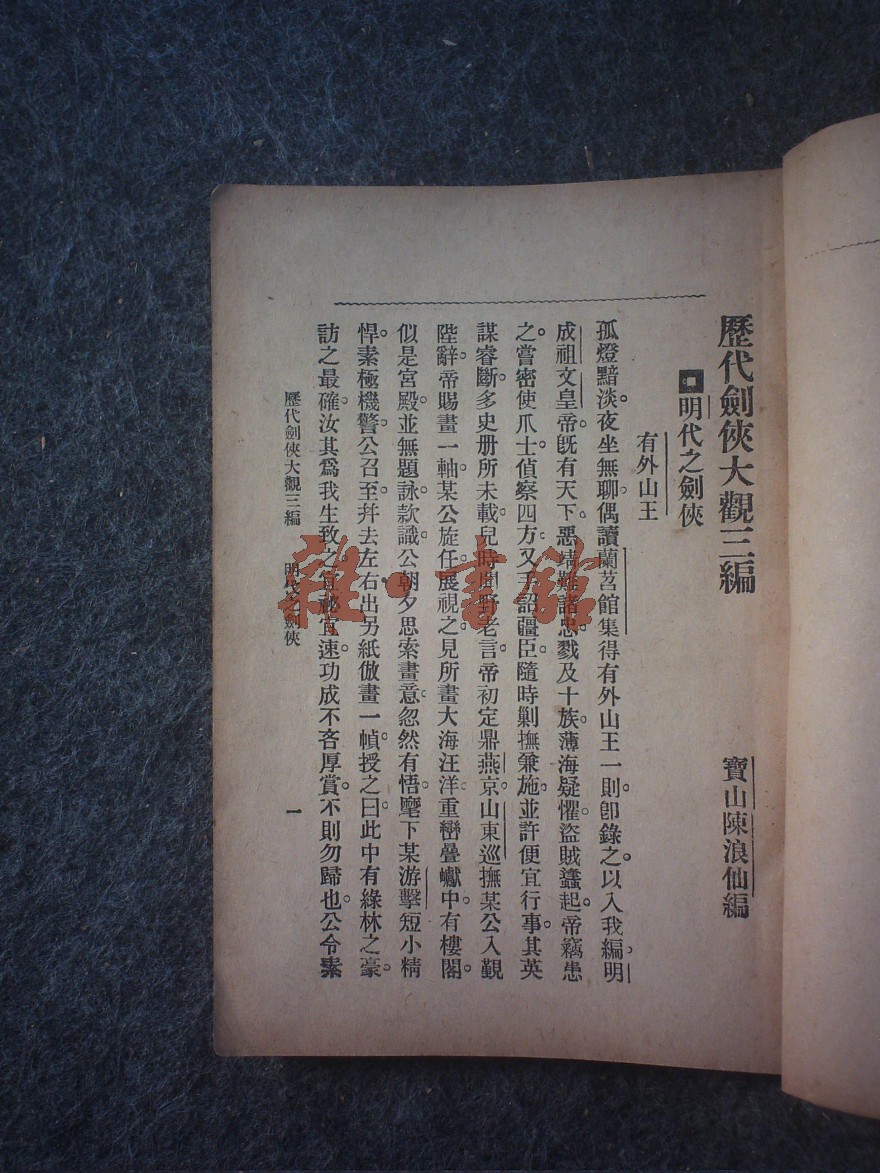 歷代劍俠大觀三編
寶山陳浪仙編
明代之劍俠
有外山王
孤燈黯淡。夜坐無聊。偶讀蘭苕館集得有外山王一則。卽錄之。以入我編。明
成祖文皇帝。旣有天下。惡靖難諸忠。戮及十族。薄海疑懼。盜賊蠭起。帝竊患
之。嘗密使爪士。偵察四方。又手詔疆臣。隨時剿撫兼施。並許便宜行事。其英
謀睿斷。多史册所未載。兒時聞野老言。帝初定鼎燕京。山東巡撫某公入覲
陛辭。帝賜畫一軸。某公旋任。展視之。見所畫大海汪洋。重巒疊巘。中有樓閣。
似是宮殿。並無題詠款識。公朝夕思索畫意。忽然有悟。麾下某游擊。短小精
悍。素極機警。公召至。幷去左右。出另紙倣畫一幀。授之曰。此中有綠林之豪。
訪之最確。汝其爲我生致之。宜祕宜速。功成不吝厚賞。不則勿歸也。公令素
歷代劍俠大觀三編 明代之劍俠
一
雜·書館